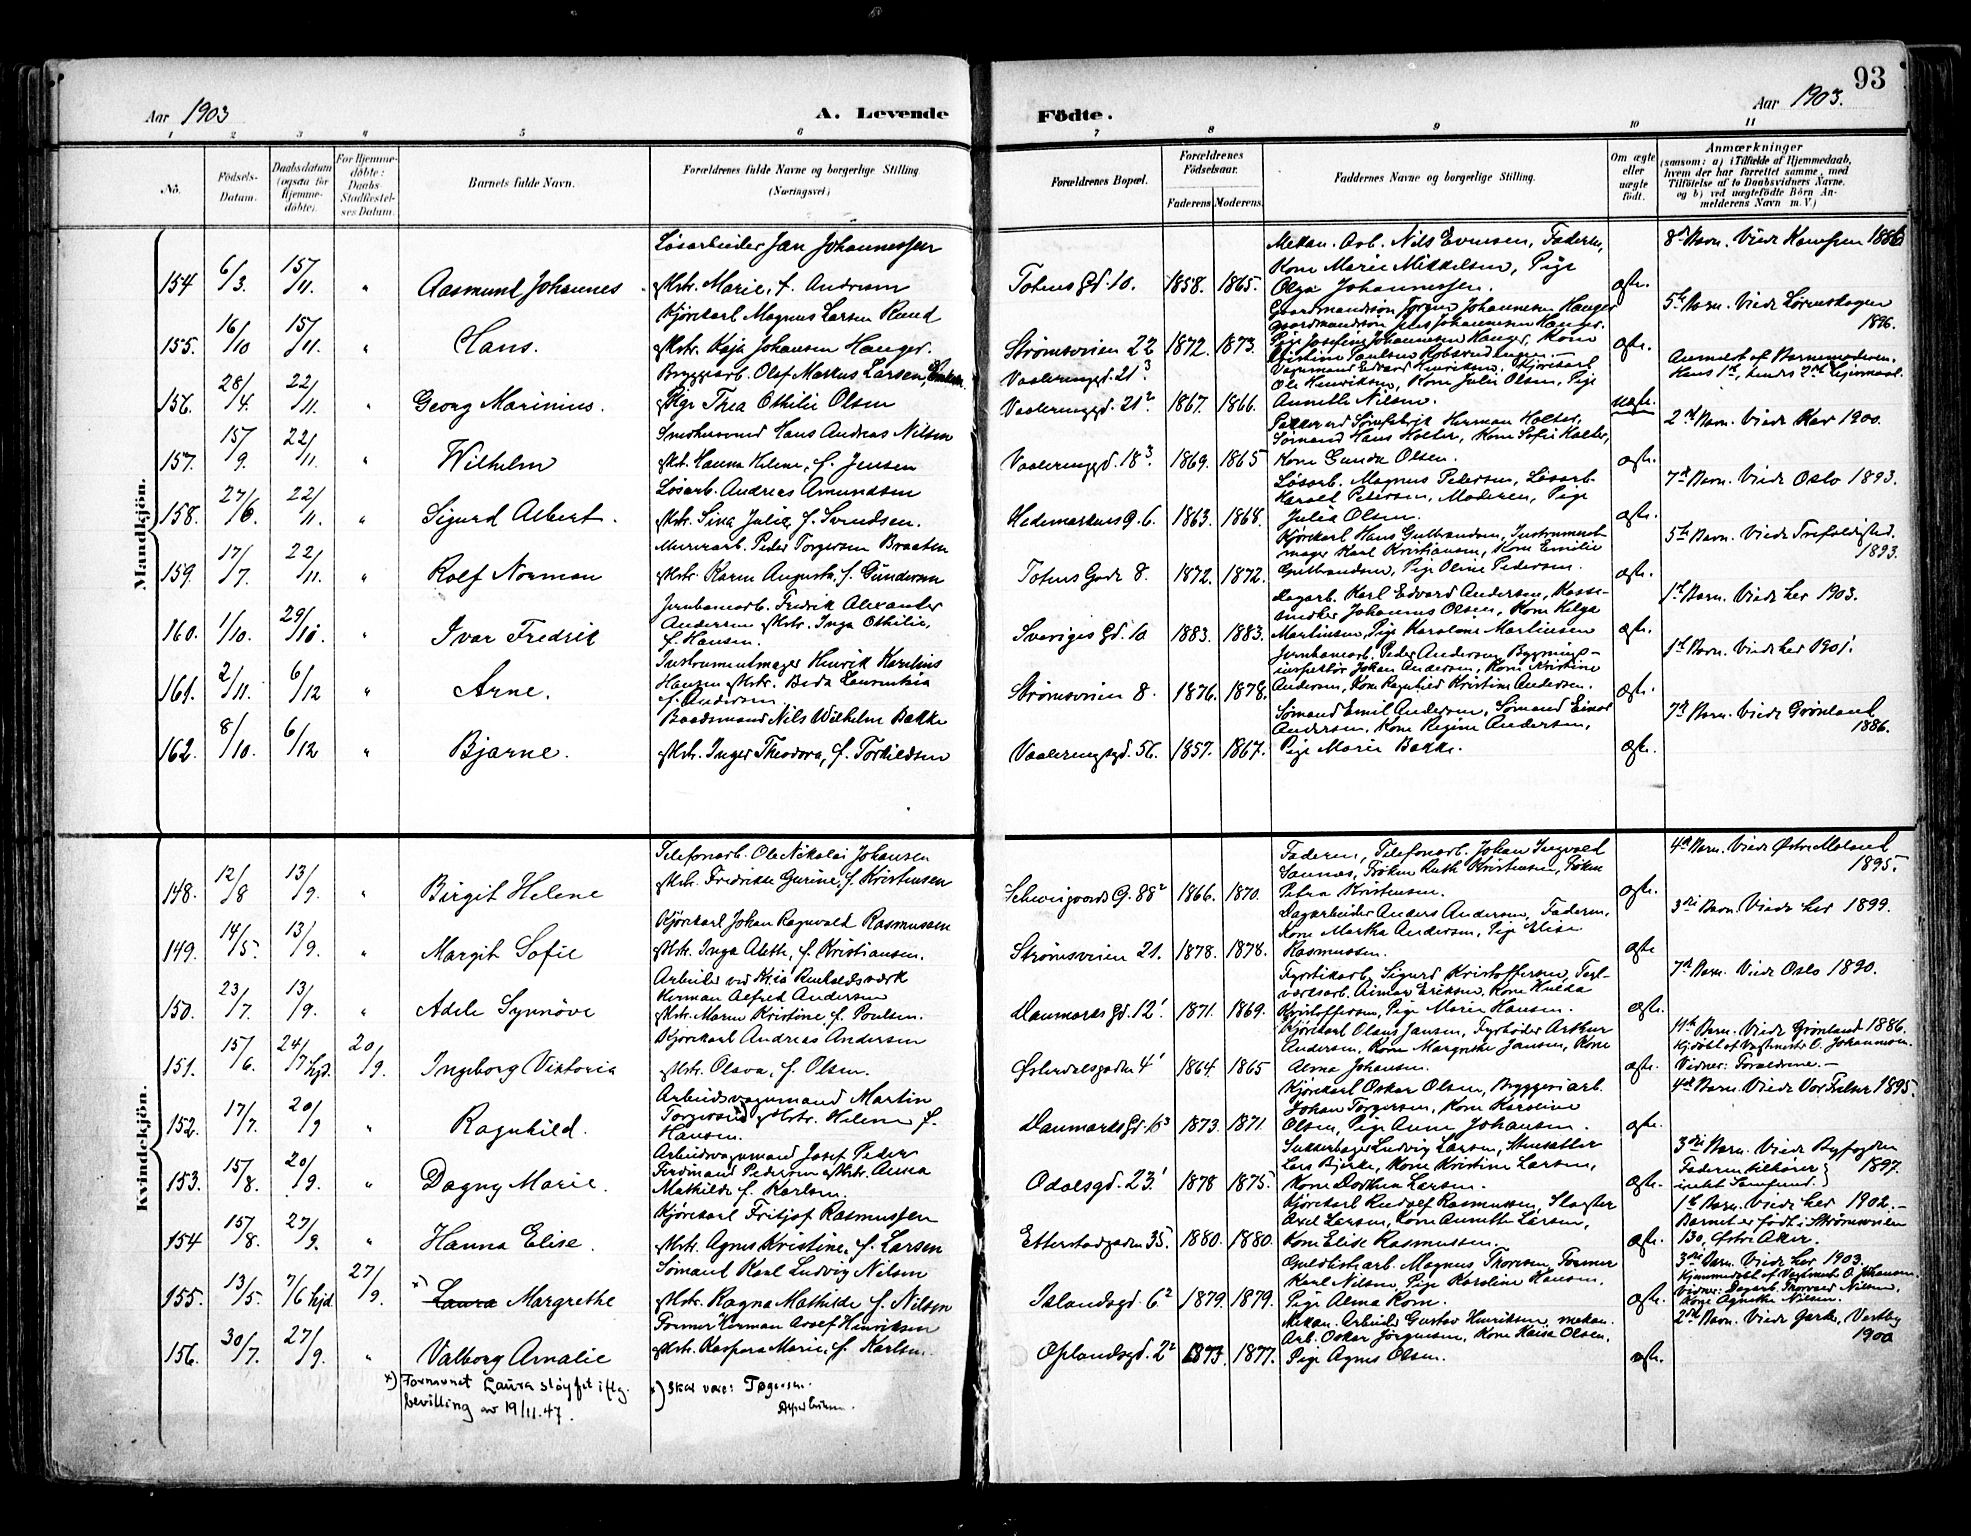 93
Aar 1903
A. Levende
Födte.
Aar 1903.
1 2 3 4 5 6 7 8 9 10 11
No.
Födsels-
Datum.
Daabsdatum
(ogsaa för
Hjemme-
döbte).
For Hjemme-
döbte:
Daabs
Stadfæstel-
ses Datum.
Barnets fulde Navn.
Forældrenes fulde Navne og borgerlige Stilling
(Næringsvei)
Forældrenes Bopæl.
Forældrenes
Födselsaar.
Faderens Moderens.
Faddernes Navne og borgerlige Stilling.
Om ægte
eller
uægte
født.
Anmærkninger
(saasom: a) i Tilfælde af Hjemmedaab,
hvem der har forrettet samme, med
Tilföielse af to Daabsvidners Navne,
og b) ved uægtefödte Börn An-
melderens Navn m. V.)
Mandkjön.
154. 6/3. 15/11. " Aasmund Johannes
Løsarbeider Jan Johannessen
Hstr. Marie, f. Andersen
Totens Gd. 10. 1858. 1865.
Mekan. Arb. Nils Evensen, Faderen,
Kone Marie Mikkelsen, Pige
Olga Johannessen.
ægte.
8de Barn. Viede Kampen 1886
155. 16/10 15/11. " Hans.
Kjørekarl Magnus Larsen Rund
Hstr. Kaja Johansen Hanger.
Strømsveien 22 1872. 1873.
Gaardmandsøn Jørgen Johannesen Hanger
Gaardmandsøn Jens Johannesen Hanger.
Pige Josefine Johannesen Hanger, Kone
Kristine Paulsen
ægte.
5te Barn. Viede Lørenskogen
1896.
156. 28/4. 22/11. " Georg Marinius.
Bryggearb. Olaf Markus Larsen,
Pige Thea Othilie Olsen
Vaaleringgd. 21³
Vaaleringgd. 21². 1867. 1866.
Vognmand Edvard Henriksen, Kjørekarl
Ole Henriksen, Kone Julie Olsen, Pige
Annette Nilsen.
uægte.
Anmeldt af Barnemoderen.
Hans 1ste, hendes 2det Leiermaal.
157. 15/9. 22/11. " Wilhelm
Snedkersvend Hans Andreas Nilsen
Hstr. Hanna Helene, f. Jensen
Vaaleringgd. 18³. 1869. 1865
Pakker ved Herman Holter,
Sømand Hans Holter, Kone Sofie Holter,
Kone Gunda Olsen.
ægte.
2det Barn. Viede Her 1900.
158. 27/6. 22/11. " Sigurd Albert.
Løsarb. Andreas Amundsen
Hstr. Sina Julie f. Svendsen.
Hedemarkens G. 6. 1863. 1868.
Løsarb. Magnus Petersen, Løsarb.
Harald Petersen, Moderen, Pige
Julia Olsen.
ægte.
7de Barn. Viede Oslo 1893.
159. 17/7. 22/11. " Rolf Norman
Murerarb. Peder Torgersen Braaten
Hstr. Karen Augusta, f. Gundersen
Totens Gade 8. 1872. 1872.
Kjørekarl Hans Gulbrandsen, Instrument-
mager Karl Kristiansen, Kone Emilie
Gulbrandsen, Pige Oline Pedersen.
ægte.
5te Barn. Viede Trefoldighed.
1893.
160. 1/10. 29/11. " Ivar Fredrik
Jernbanearb. Fredrik Alexander
Andersen Hstr. Inga Othilie,
f. Hansen.
Sveriges Gd. 10 1883. 1883.
Dagarb. Karl Edvard Andersen, Kasse-
snedker Johannes Olsen, Kone Helga
Martinsen, Pige Karoline Martinsen
ægte.
1ste Barn. Viede her 1903.
161. 2/11. 6/12 " Arne.
Instrumentmager Henrik Karelius
Hansen Hstr. Beda Laurentzia
f. Andersen
Strømsveien 8. 1876. 1878.
Jernbanearb. Peder Andersen, Bygnings-
inspektør Johan Andersen, Kone Kristine
Andersen, Kone Ragnhild Kristine Andersen.
ægte.
1ste Barn. Viede her 1901.
162. 8/10. 6/12 " Bjarne.
Baadsmand Nils Wilhelm Bakke
Hstr. Inger Theodora, f. Torkildsen
Vaaleringgd. 56. 1857. 1867.
Sømand Emil Andersen, Sømand Einar
Andersen, Kone Regine Andersen,
Pige Marie Bakke.
ægte.
7de Barn. Viede Grønland
1886.
Kvindekjön.
148. 12/8 13/9. " Birgit Helene
Telefonarb. Ole Nikolai Johansen
Hstr. Fredrikke Gurine, f. Kristensen
Schweigaards G. 88² 1866. 1870.
Faderen, Telefonarb. Johan Ingvald
Sannes, Frøken Ruth Kristensen, Frøken
Petra Kristensen.
ægte.
4de Barn. Viede Østre Moland
1895.
149. 14/5. 13/9. " Margit Sofie
Kjørekarl Johan Ragnvald Rasmussen
Hstr. Inga Alette, f. Kristiansen.
Strømsveien 21. 1878. 1878.
Dagarbeider Anders Andersen, Faderen,
Kone Martha Andersen, Pige Elise
Rasmussen.
ægte
3die Barn. Viede her 1899.
150. 23/7. 13/9. " Adele Synnöve
Arbeider ved Kria Renholdsværk
Herman Alfred Andersen
Hstr. Maren Kristine, f. Poulsen.
Danmarks Gd. 12¹ 1871. 1869.
Fyrstikarb. Sigurd Kristoffersen,
Einar Eriksen, Kone Hulda
Kristoffersen, Pige Marie Hansen.
ægte.
7de Barn. Viede Oslo 1890.
151. 15/6. 24/7 hjd. 20/9. Ingeborg Viktoria
Kjørekarl Andreas Andersen
Hstr. Olava, f. Olsen.
Østerdalsgaden 4¹ 1864. 1865
Kjørekarl Olaus Jansen, Fyrbøder Arthur
Andersen, Kone Margrethe Jansen, Kone
Alma Johansen.
ægte.
11te Barn. Viede Grønland 1886.
Hjdøbt af Vagtmester O. Johannesen.
Vidner: Forældrene.–
152. 17/7. 20/9 " Ragnhild.
Arbeidsvognmand Martin
Torgersen Hstr. Helene f.
Hansen.
Danmarks Gd. 6³ 1873. 1871.
Kjørekarl Oskar Olsen, Bryggeriarb.
Johan Torgersen, Kone Karoline
Olsen, Pige Anne Johansen.
ægte.
4de Barn. Viede Vor Frelser 1895.
153. 15/8. 20/9. " Dagny Marie.
Arbeidsvognmand Josef Peder
Ferdinand Pedersen Hstr. Anna
Mathilde f. Karlsen
Odalsgd. 23¹ 1878 1875.
Sukkerbager Ludvig Larsen, Stensætter
Lars Bjerke, Kone Kristine Larsen,
Kone Dorthea Larsen.
ægte.
3die Barn. Viede Byfogden
1897.
Faderen tilhører
intet Samfund.
154 15/8. 27/9. " Hanna Elise.
Kjørekarl Fritjof Rasmussen
Hstr. Agnes Kristine, f. Larsen
Etterstadgaden 35. 1880. 1880.
Kjørekarl Rudolf Rasmussen, Slagter
Axel Larsen, Kone Annette Larsen,
Kone Elise Rasmussen.
ægte.
1ste Barn. Viede her 1902.–
Barnet er født i Strømsveien
130, Østre Aker.
155. 13/5. 7/6 hjd. 27/9. x) Laura Margrethe
Sømand Karl Ludvig Nilsen
Hstr. Ragna Mathilde f. Nilsen
Islandsgd. 6² 1879. 1879.
Guldlistearb. Magnus Thoresen, Former
Karl Nilsen, Pige Karoline Hansen,
Pige Alma Rom.
ægte.
3die Barn. Viede her 1903.
Hjemmedøbt af Vagtmest. O. Johansen.
Vidner: Dagarb. Thorvald Nilsen,
Kone Agnethe Nilsen.
156. 30/7. 27/9. " Valborg Amalie
Former Herman Adolf Henriksen
Hstr. Kaspara Marie, f. Karlsen.
Oplandsgd. 2² 1873. 1877.
Mekan. Arbeider Gustav Henriksen, mekan.
Arb. Oskar Jørgensen, Kone Kaisa Olsen,
Pige Agnes Olsen.
ægte.
2det Barn. Viede Garder, Vestby
1900
x) Fornavnet Laura sløyfet iflg.
bevilling av 19/11.47.
x) Skal være: